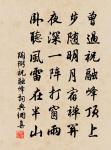 曾過祝融峰頂上
步隨明月宿禪
夜深一陣打窗雨
臥聽風雷在半山
陶弼祝融峰詞典網